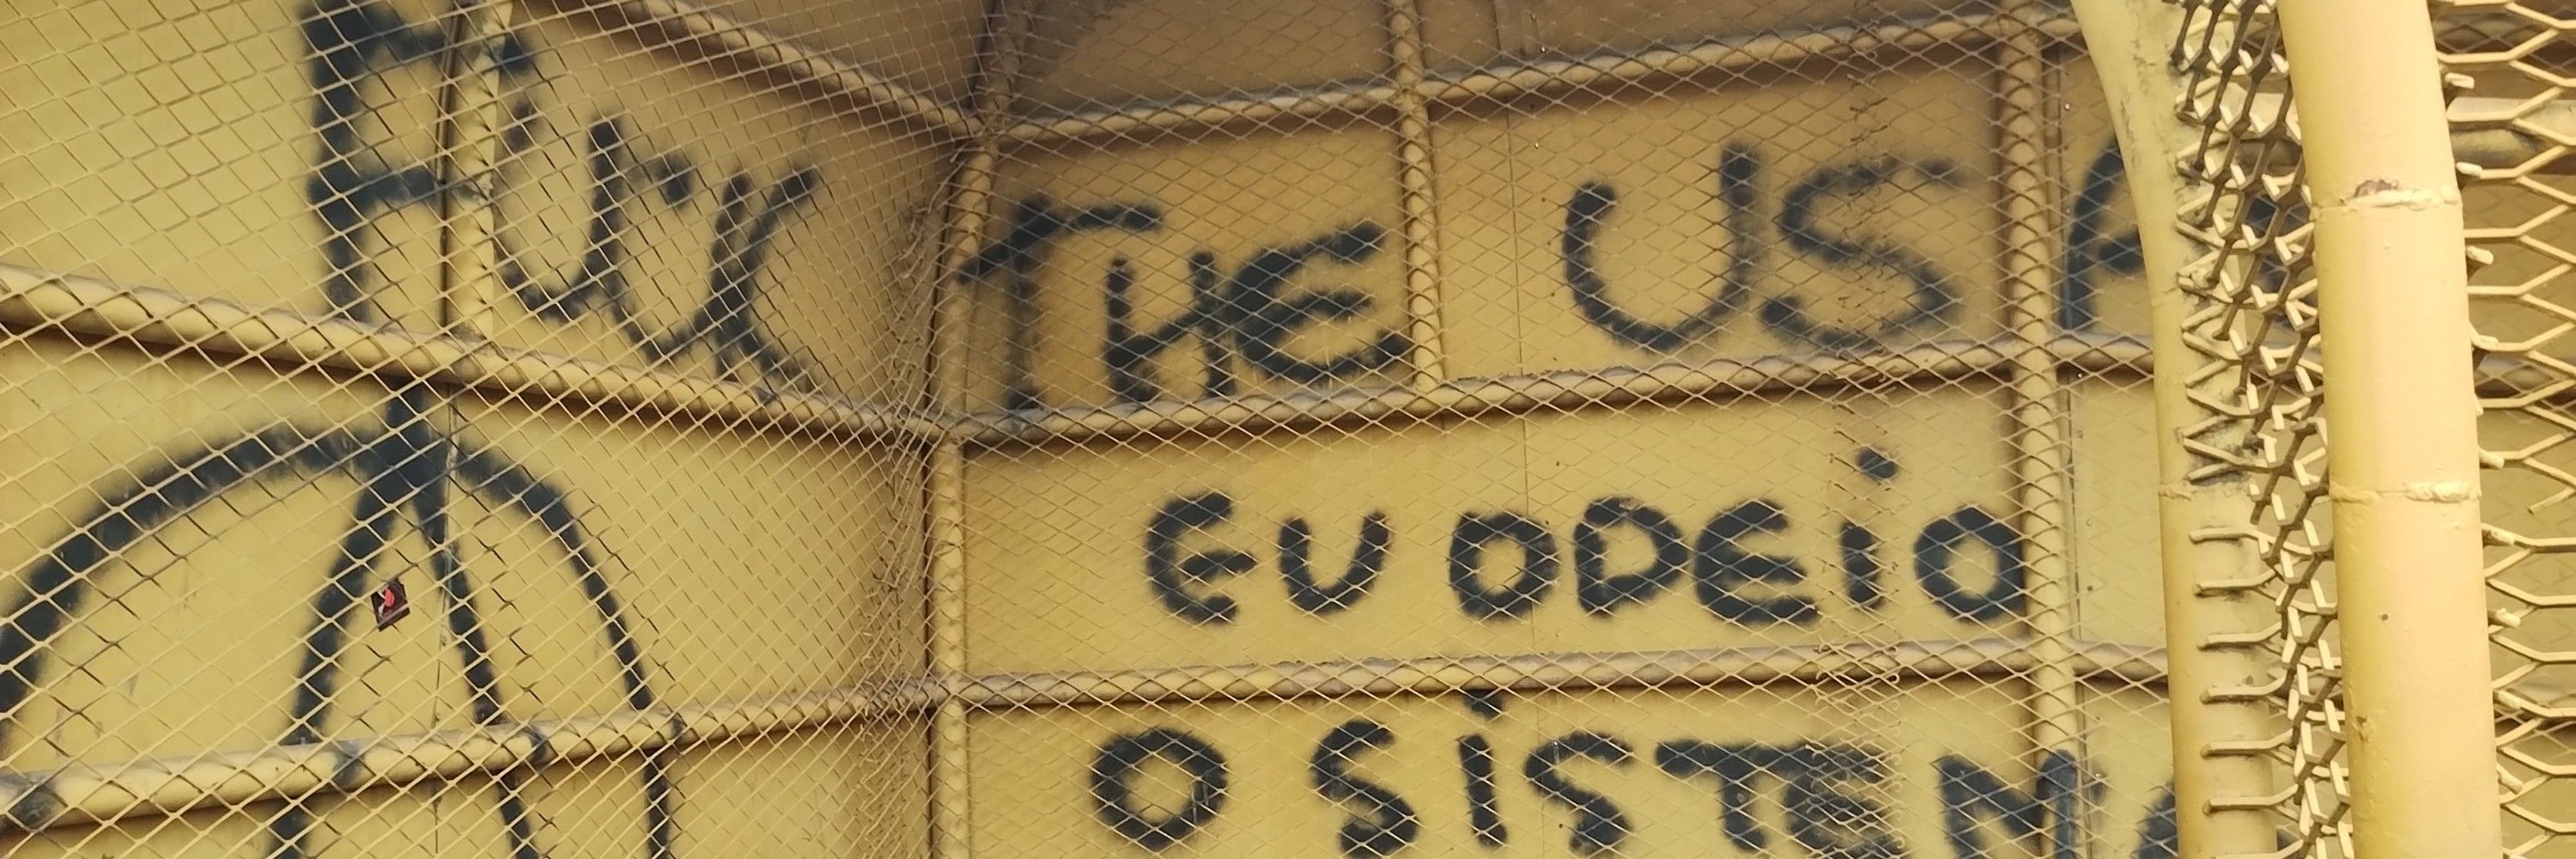 FUCK THE USA
EU ODEiO
O SiSTEMA